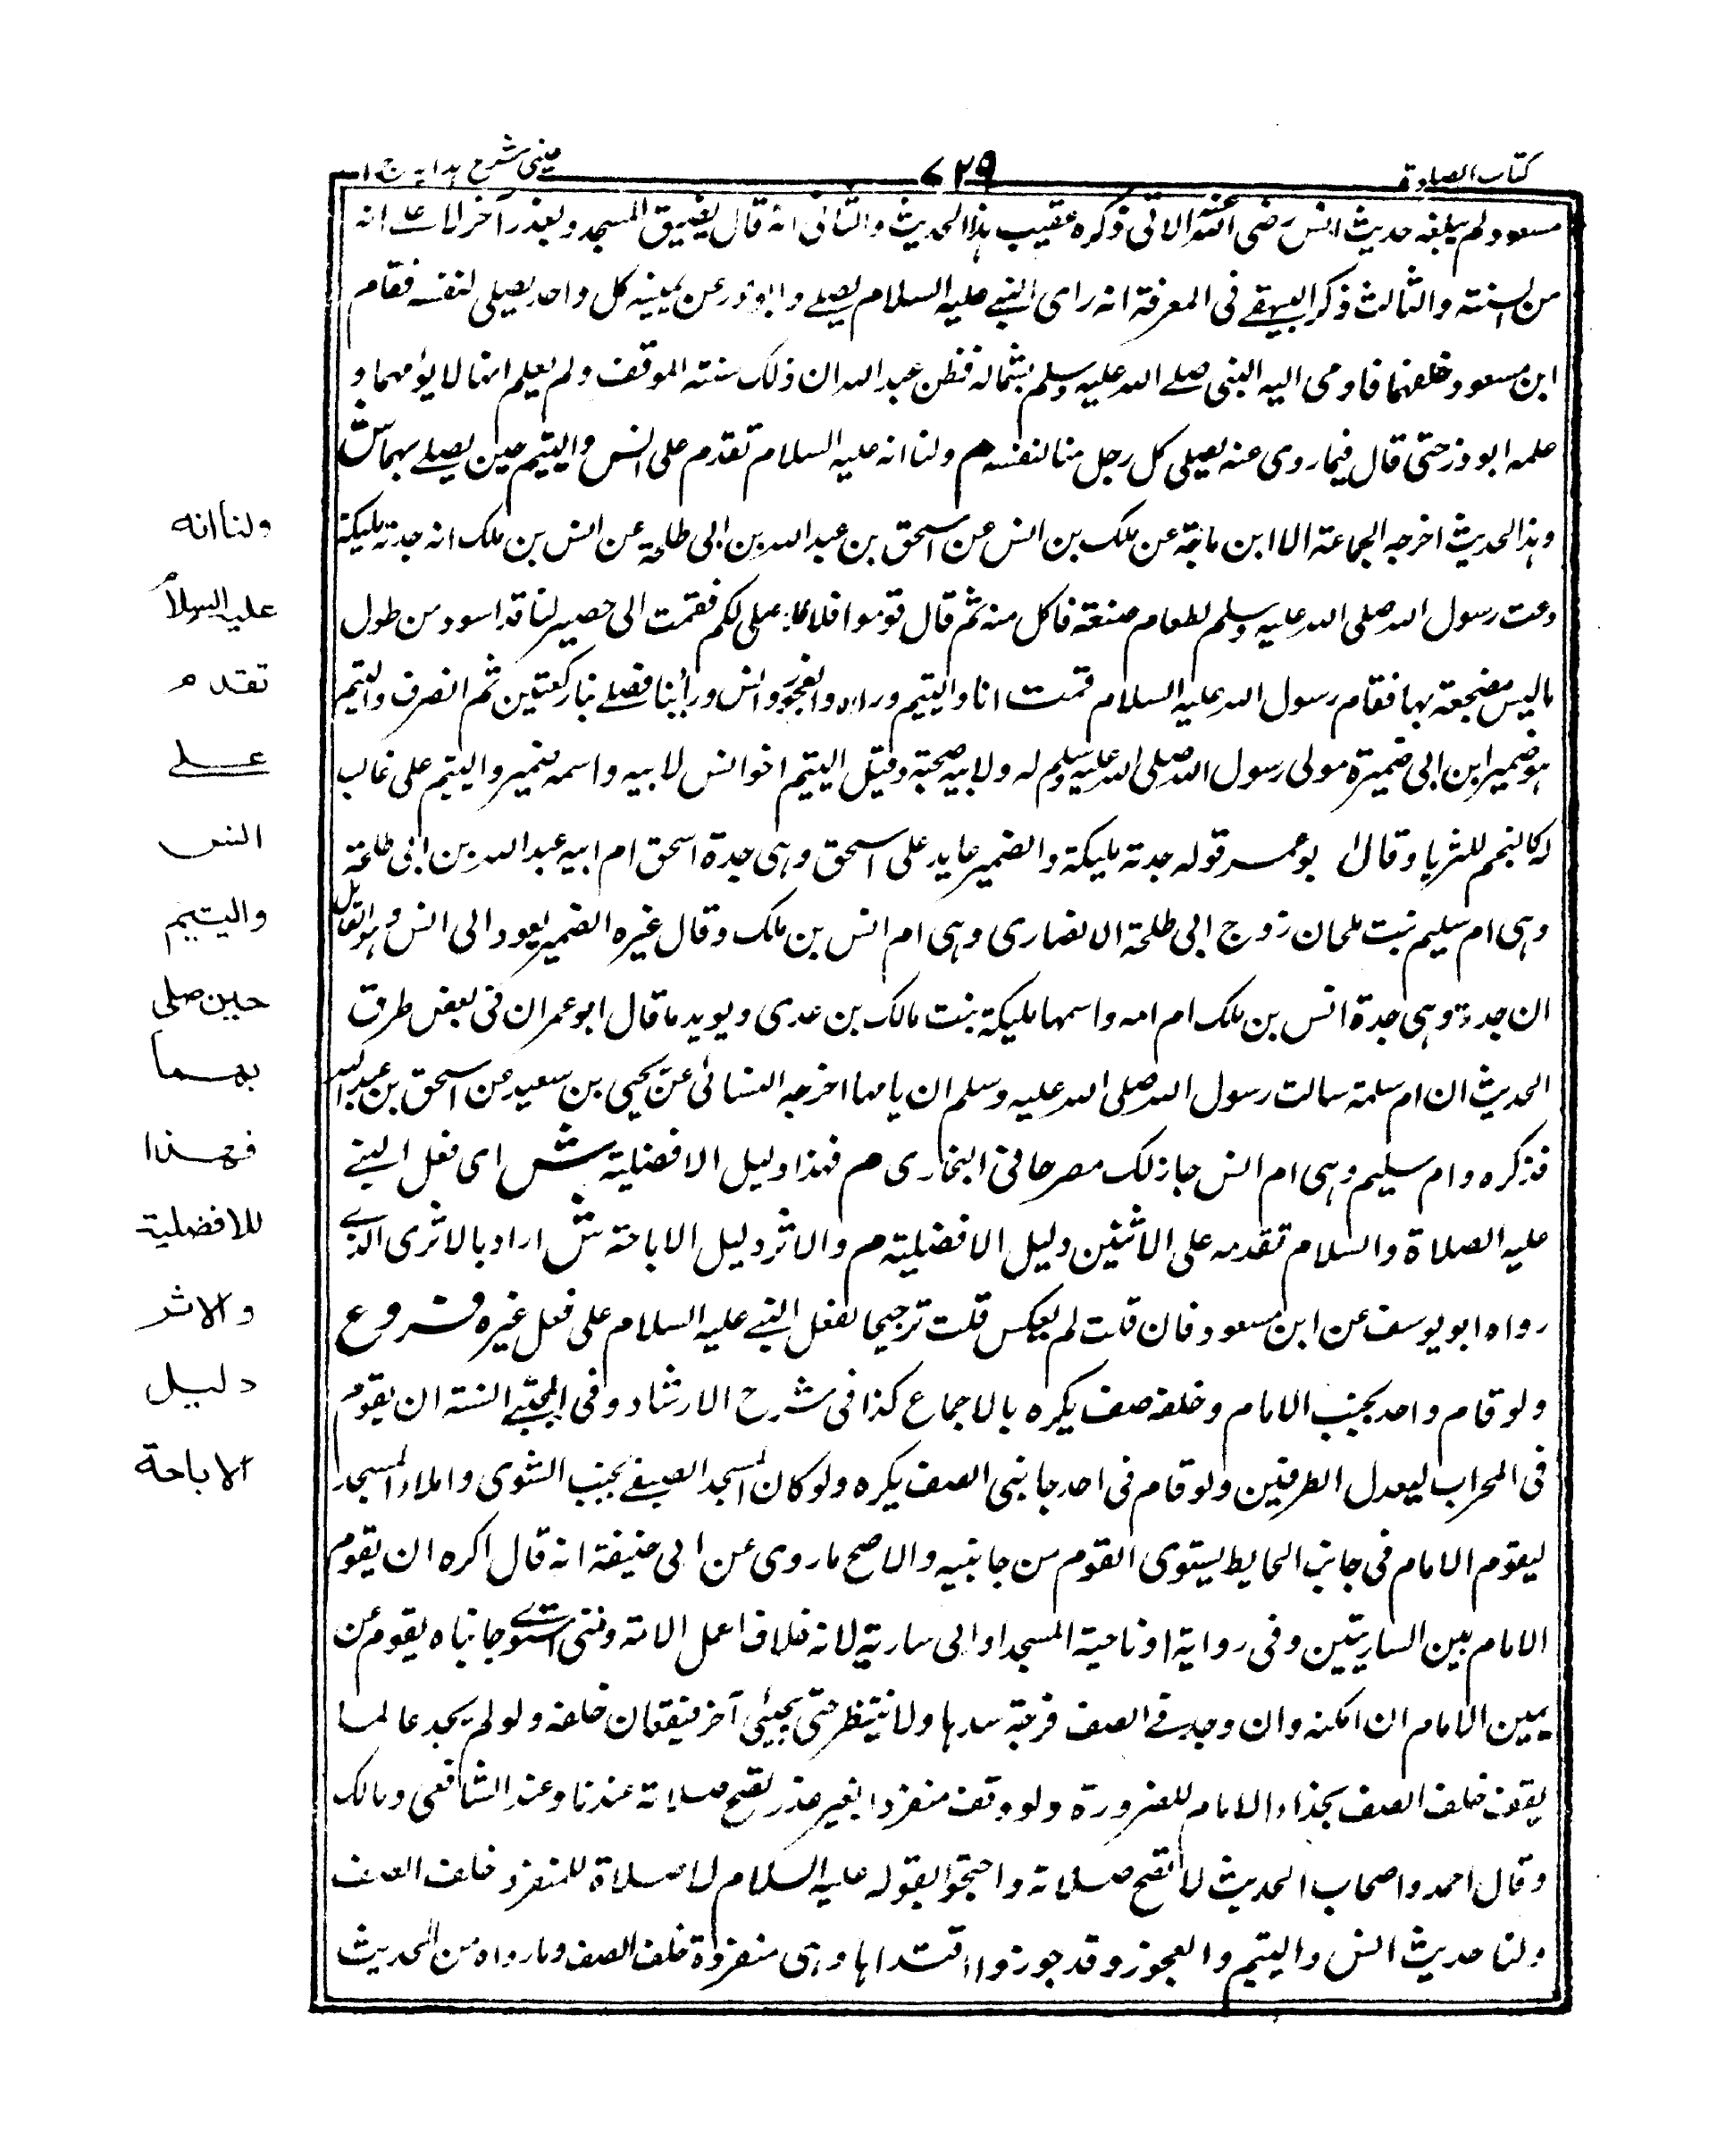 كتاب الصلوة
٧٢٩
عینی شرح هدایه ج ١
مسعود لم يبلغه حديث انس رضى الله عنه الاتى ذكره عقيب هذا الحديث والثانى انه قال لضيق المسجد و لعذر آخر لا على انه
من السنة والثالث ذكر البيهقى فى المعرفة انه راى النبى عليه السلام يصلى وابوذر عن يمينه كل واحد يصلى لنفسه فقام
ابن مسعود خلفهما فاومى اليه النبى صلى الله عليه وسلم بشماله فظن عبد الله ان ذلك سنته الموقف ولم يعلم انها لا يؤمهما و
علمه ابوذر حتى قال فيما روى عنه يصلى كل رجل منا لنفسه م ولنا انه عليه السلام تقدم على انس واليتيم حين يصلى بهما ش
وهذا الحديث اخرجه الجماعة الا ابن ماجة عن ملك بن انس عن اسحق بن عبد الله بن ابى طلحه عن انس بن ملك انه جدته مليكة
دعت رسول الله صلى الله عليه وسلم لطعام صنعته فاكل منه ثم قال قوموا فلاصلى لكم فقمت الى حصير لنا قد اسود من طول
ما لبس فنضحته بماء فقام رسول الله عليه السلام قمت انا واليتيم وراءه والعجوز وانس ورأينا فصلى بنا ركعتين ثم انصرف واليتيم
هو ضمير ابن ابى ضميرة مولى رسول الله صلى الله عليه وسلم له ولابيه صحبة وقيل اليتيم اخو انس لابيه واسمه نمير واليتيم على غالب
له كالنجم للثريا وقال ابو عمر قوله جدته مليكة والضمير عايد على اسحق وهى جدة اسحق ام ابيه عبد الله بن ابى طلحة
وهى ام سليم بنت ملحان زوج ابى طلحة الانصارى وهى ام انس بن ملك وقال غيره الضمير يعود الى انس وهو القايل
ان جدته وهى جدة انس بن ملك ام امه واسمها مليكة بنت مالك بن عدى ويويد ما قال ابو عمر ان فى بعض طرق
الحديث ان ام سلمة سالت رسول الله صلى الله عليه وسلم ان يامها اخرجه النسائى عن يحيى بن سعيد عن اسحق بن عبد الله
فذكره وام سليم وهى ام انس جاز لك مصرحا فى البخارى م فهذا دليل الافضلية ش اى فعل النبى
عليه الصلاة والسلام تقدمه على الاثنين دليل الافضلية م والاثر دليل الاباحة ش اراد بالاثرى الذى
رواه ابو يوسف عن ابن مسعود فان قلت لم يعكس قلت ترجيحا لفعل النبى عليه السلام على فعل غيره فروع
ولو قام واحد بجنب الامام وخلفه صف يكره بالاجماع كذا فى شرح الارشاد وفى المجتبى السنة ان يقوم
فى المحراب ليعدل الطرفين ولو قام فى احد جانبى الصف يكره ولو كان المسجد الصيفى بجنب الشتوى واملاء المسجد
ليقوم الامام فى جانب الحايط يستوى القوم من جانبيه والاصح ما روى عن ابى حنيفة انه قال اكره ان يقوم
الامام بين الساريتين وفى رواية او ناحية المسجد او الى سارية لانه خلاف اعمل الامة ومتى استوى جانباه يقوم عن
يمين الامام ان امكنه وان وجد فى الصف فرجة سدها ولا ينتظر حتى يجيئى آخر فيقفان خلفه ولو لم يجد عالما
يقف خلف الصف بحذاء الامام للضرورة ولو وقف منفردا بغير عذر تصح صلاته عندنا وعند الشافعى ومالك
وقال احمد واصحاب الحديث لا تصح صلاته واحتجوا بقوله عليه السلام لا صلاة للمنفرد خلف الصف
ولنا حديث انس واليتيم والعجوز وقد جوزوا اقتداها وهى منفردة خلف الصف وما رواه من الحديث
ولنا انه
عليه السلام
تقدم
على
انس
واليتيم
حين صلى
بهما
فهذا
للافضلية
والاثر
دليل
الاباحة